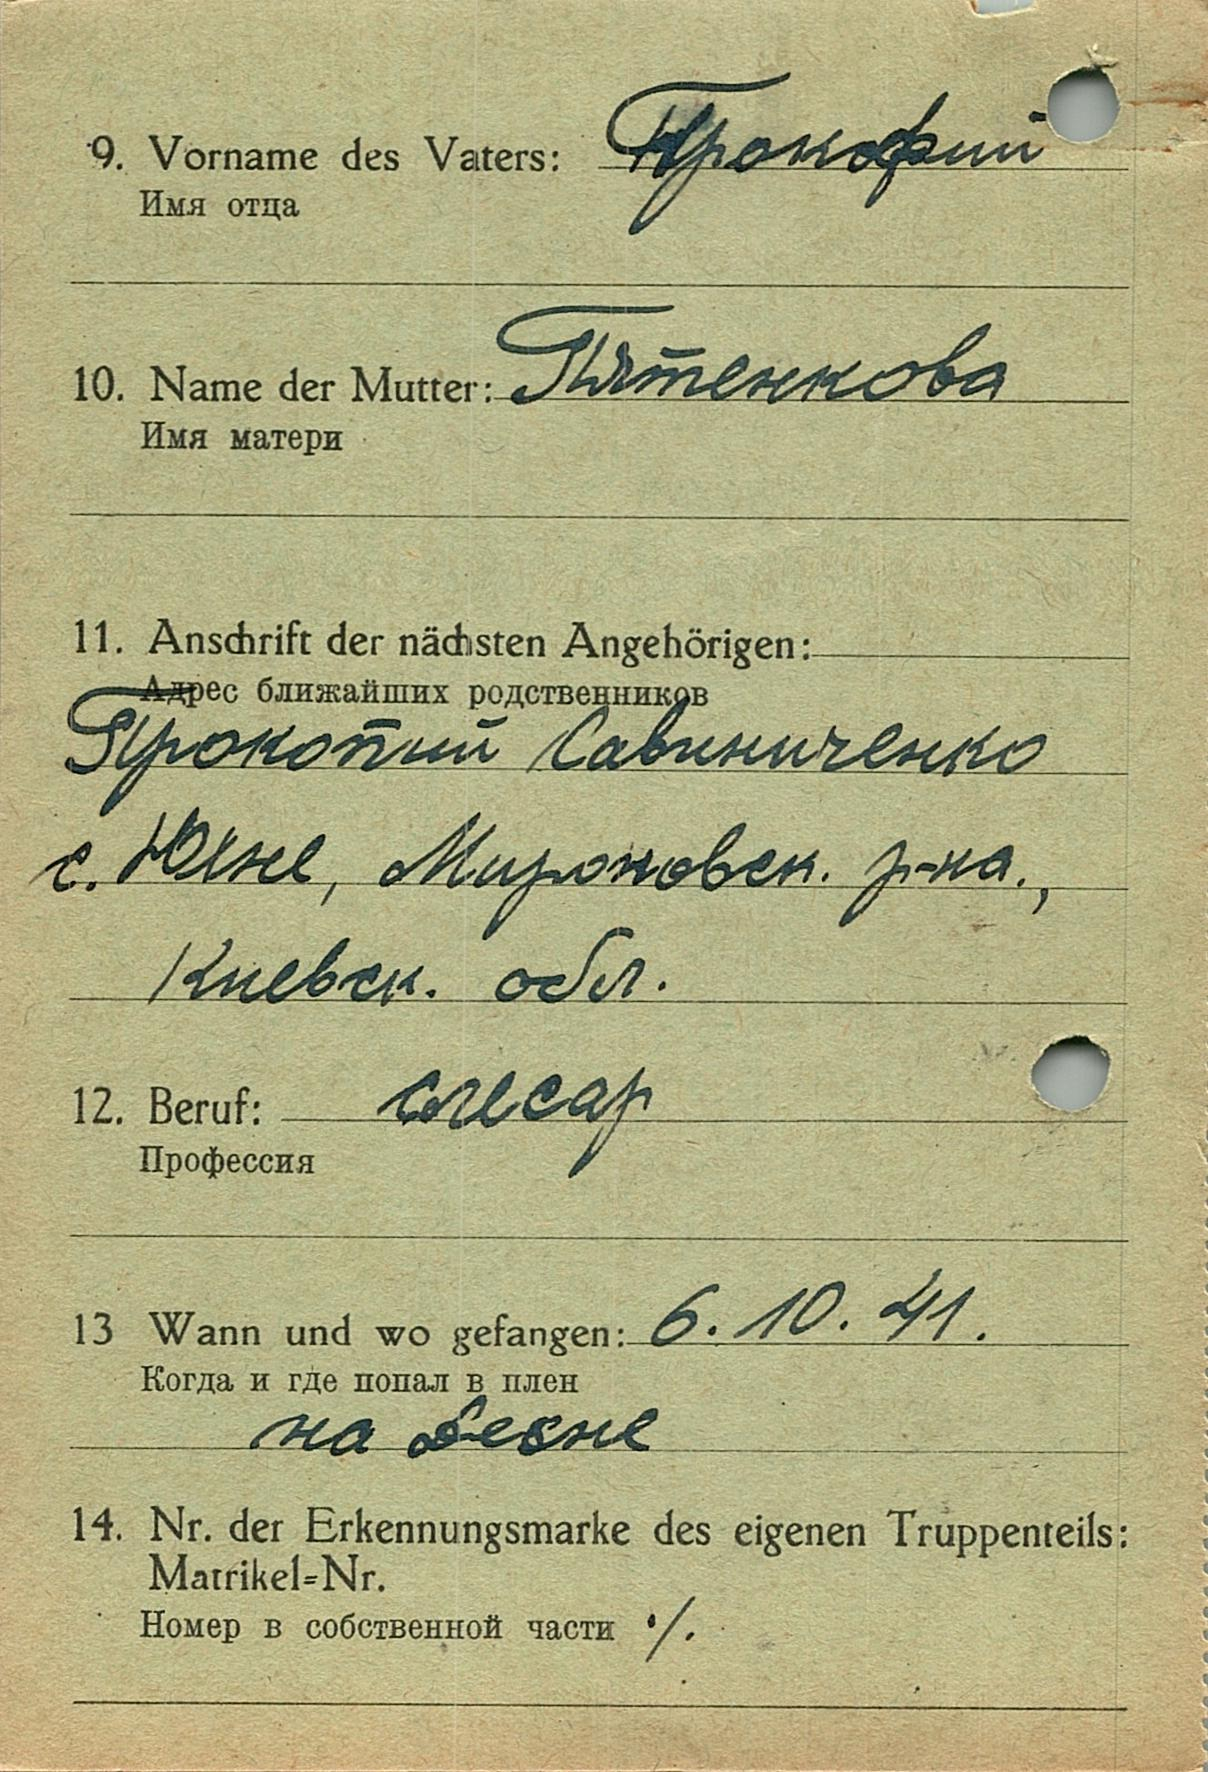 9. Vorname des Vaters: Прокофий
Имя отца
10. Name der Mutter: Пятенкова
Имя матери
11. Anschrift der nächsten Angehörigen:
Адрес ближайших родственников
Прокопий Савиниченко
с. Юхне, Мироновск. р-на.,
Киевск. обл.
12. Beruf: слесар
Профессия
13 Wann und wo gefangen: 6. 10. 41.
Когда и где попал в плен
на Десне
14. Nr. der Erkennungsmarke des eigenen Truppenteils:
Matrikel=Nr.
Номер в собственной части ·/.